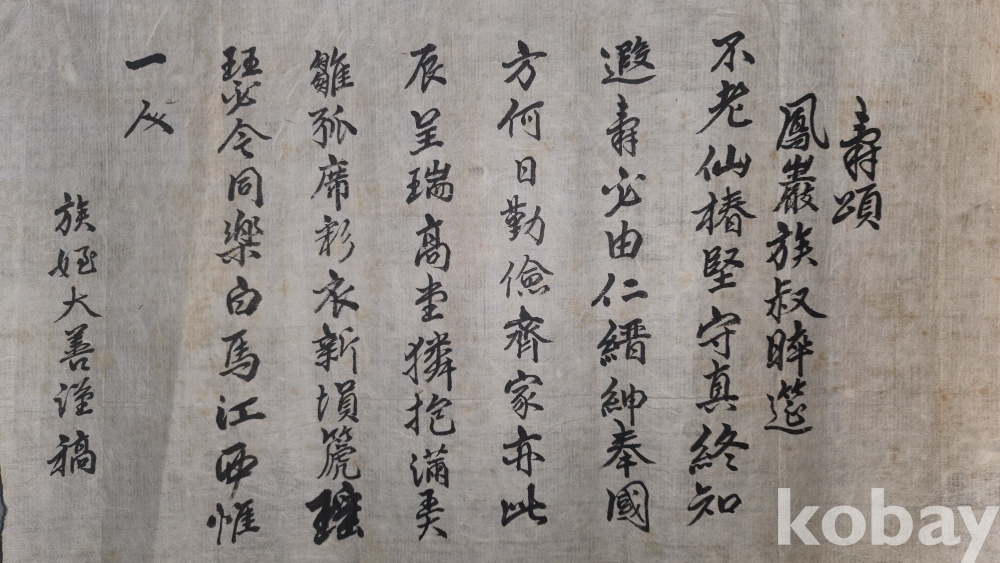 壽頌
鳳巖族叔晬筵
不老仙椿堅守真終知
遐壽必由仁縉紳奉國
方何日勤儉齊家亦此
辰呈瑞高堂獜抱滿
雛弧席彩衣新塤篪瑤
瑟令同樂白馬江西惟
一人
族姪大善謹稿
kobay